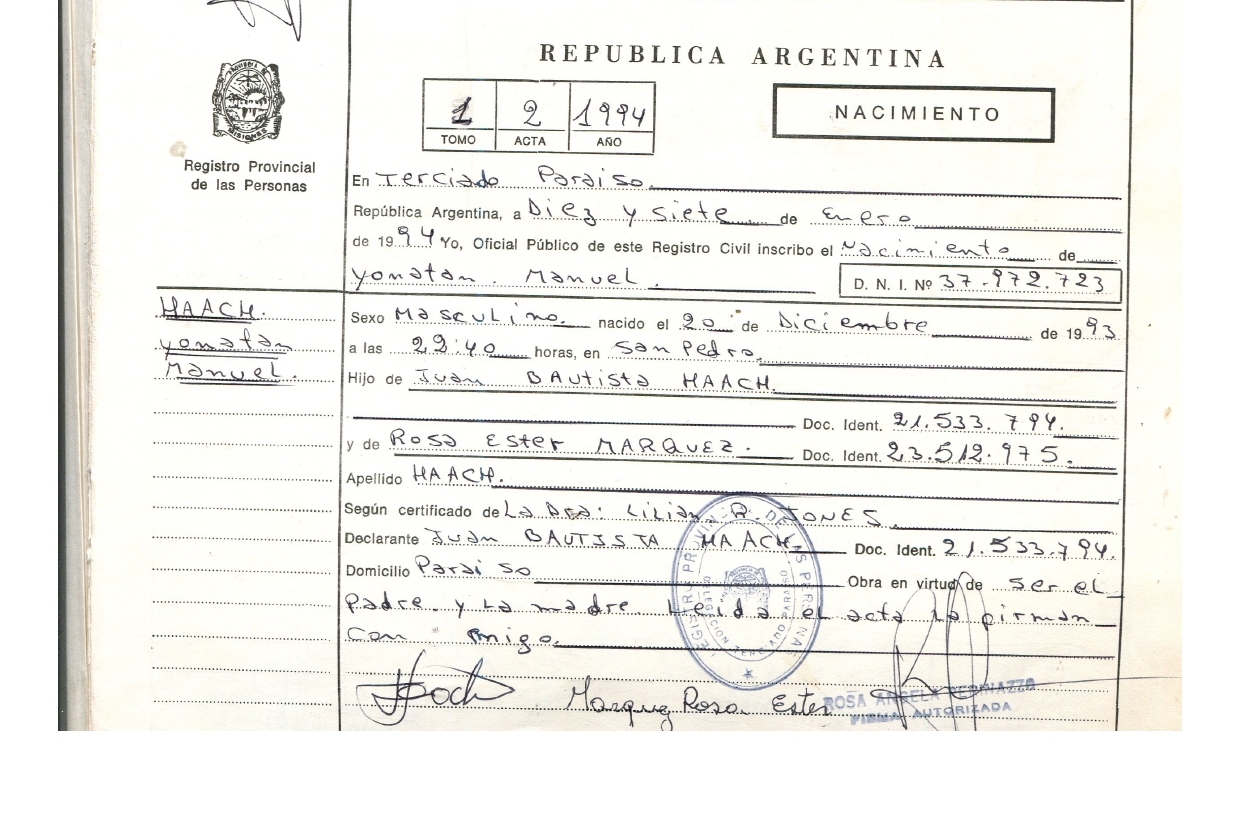 REPUBLICA ARGENTINA
1 2 1994
TOMO ACTA AÑO
NACIMIENTO
PROVINCIA DE MISIONES
Registro Provincial
de las Personas
En Terciado Paraiso.
República Argentina, a Diez y siete de Enero
de 1994 Yo, Oficial Público de este Registro Civil inscribo el Nacimiento de
yonatan. Manuel. D. N. I. Nº 37.972.723
HAACH.
yonatan
Manuel.
Sexo Masculino. nacido el 20 de Diciembre de 1993
a las 22:40 horas, en San Pedro.
Hijo de Juan BAutista HAACH.
Doc. Ident. 21.533.794.
y de Rosa Ester MARQUEZ. Doc. Ident. 23.512.975.
Apellido HAACH.
Según certificado de La Dra: Lilian R. JONES.
Declarante Juan BAUTISTA HAACH. Doc. Ident. 21.533.794.
Domicilio Paraiso Obra en virtud de ser el
padre. y La madre Leida el acta la firman
Con migo.
REGISTRO PROVINCIAL DE LAS PERSONAS
DELEGACION TERCIADO PARAISO
Marquez Rosa Ester
ROSA ANGELA
FIRMA AUTORIZADA